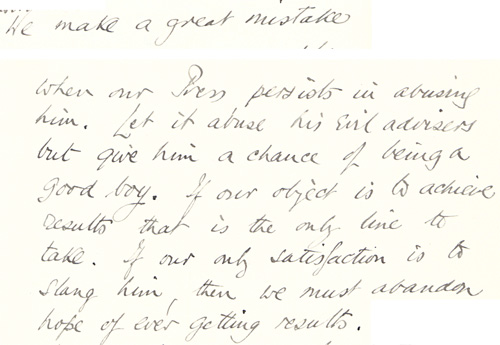 We make a great mistake
when our Press persists in abusing
him. Let it abuse his evil advisers
but give him a chance of being a
good boy. If our object is to achieve
results that is the only line to
take. If our only satisfaction is to
slang him, then we must abandon
hope of ever getting results.